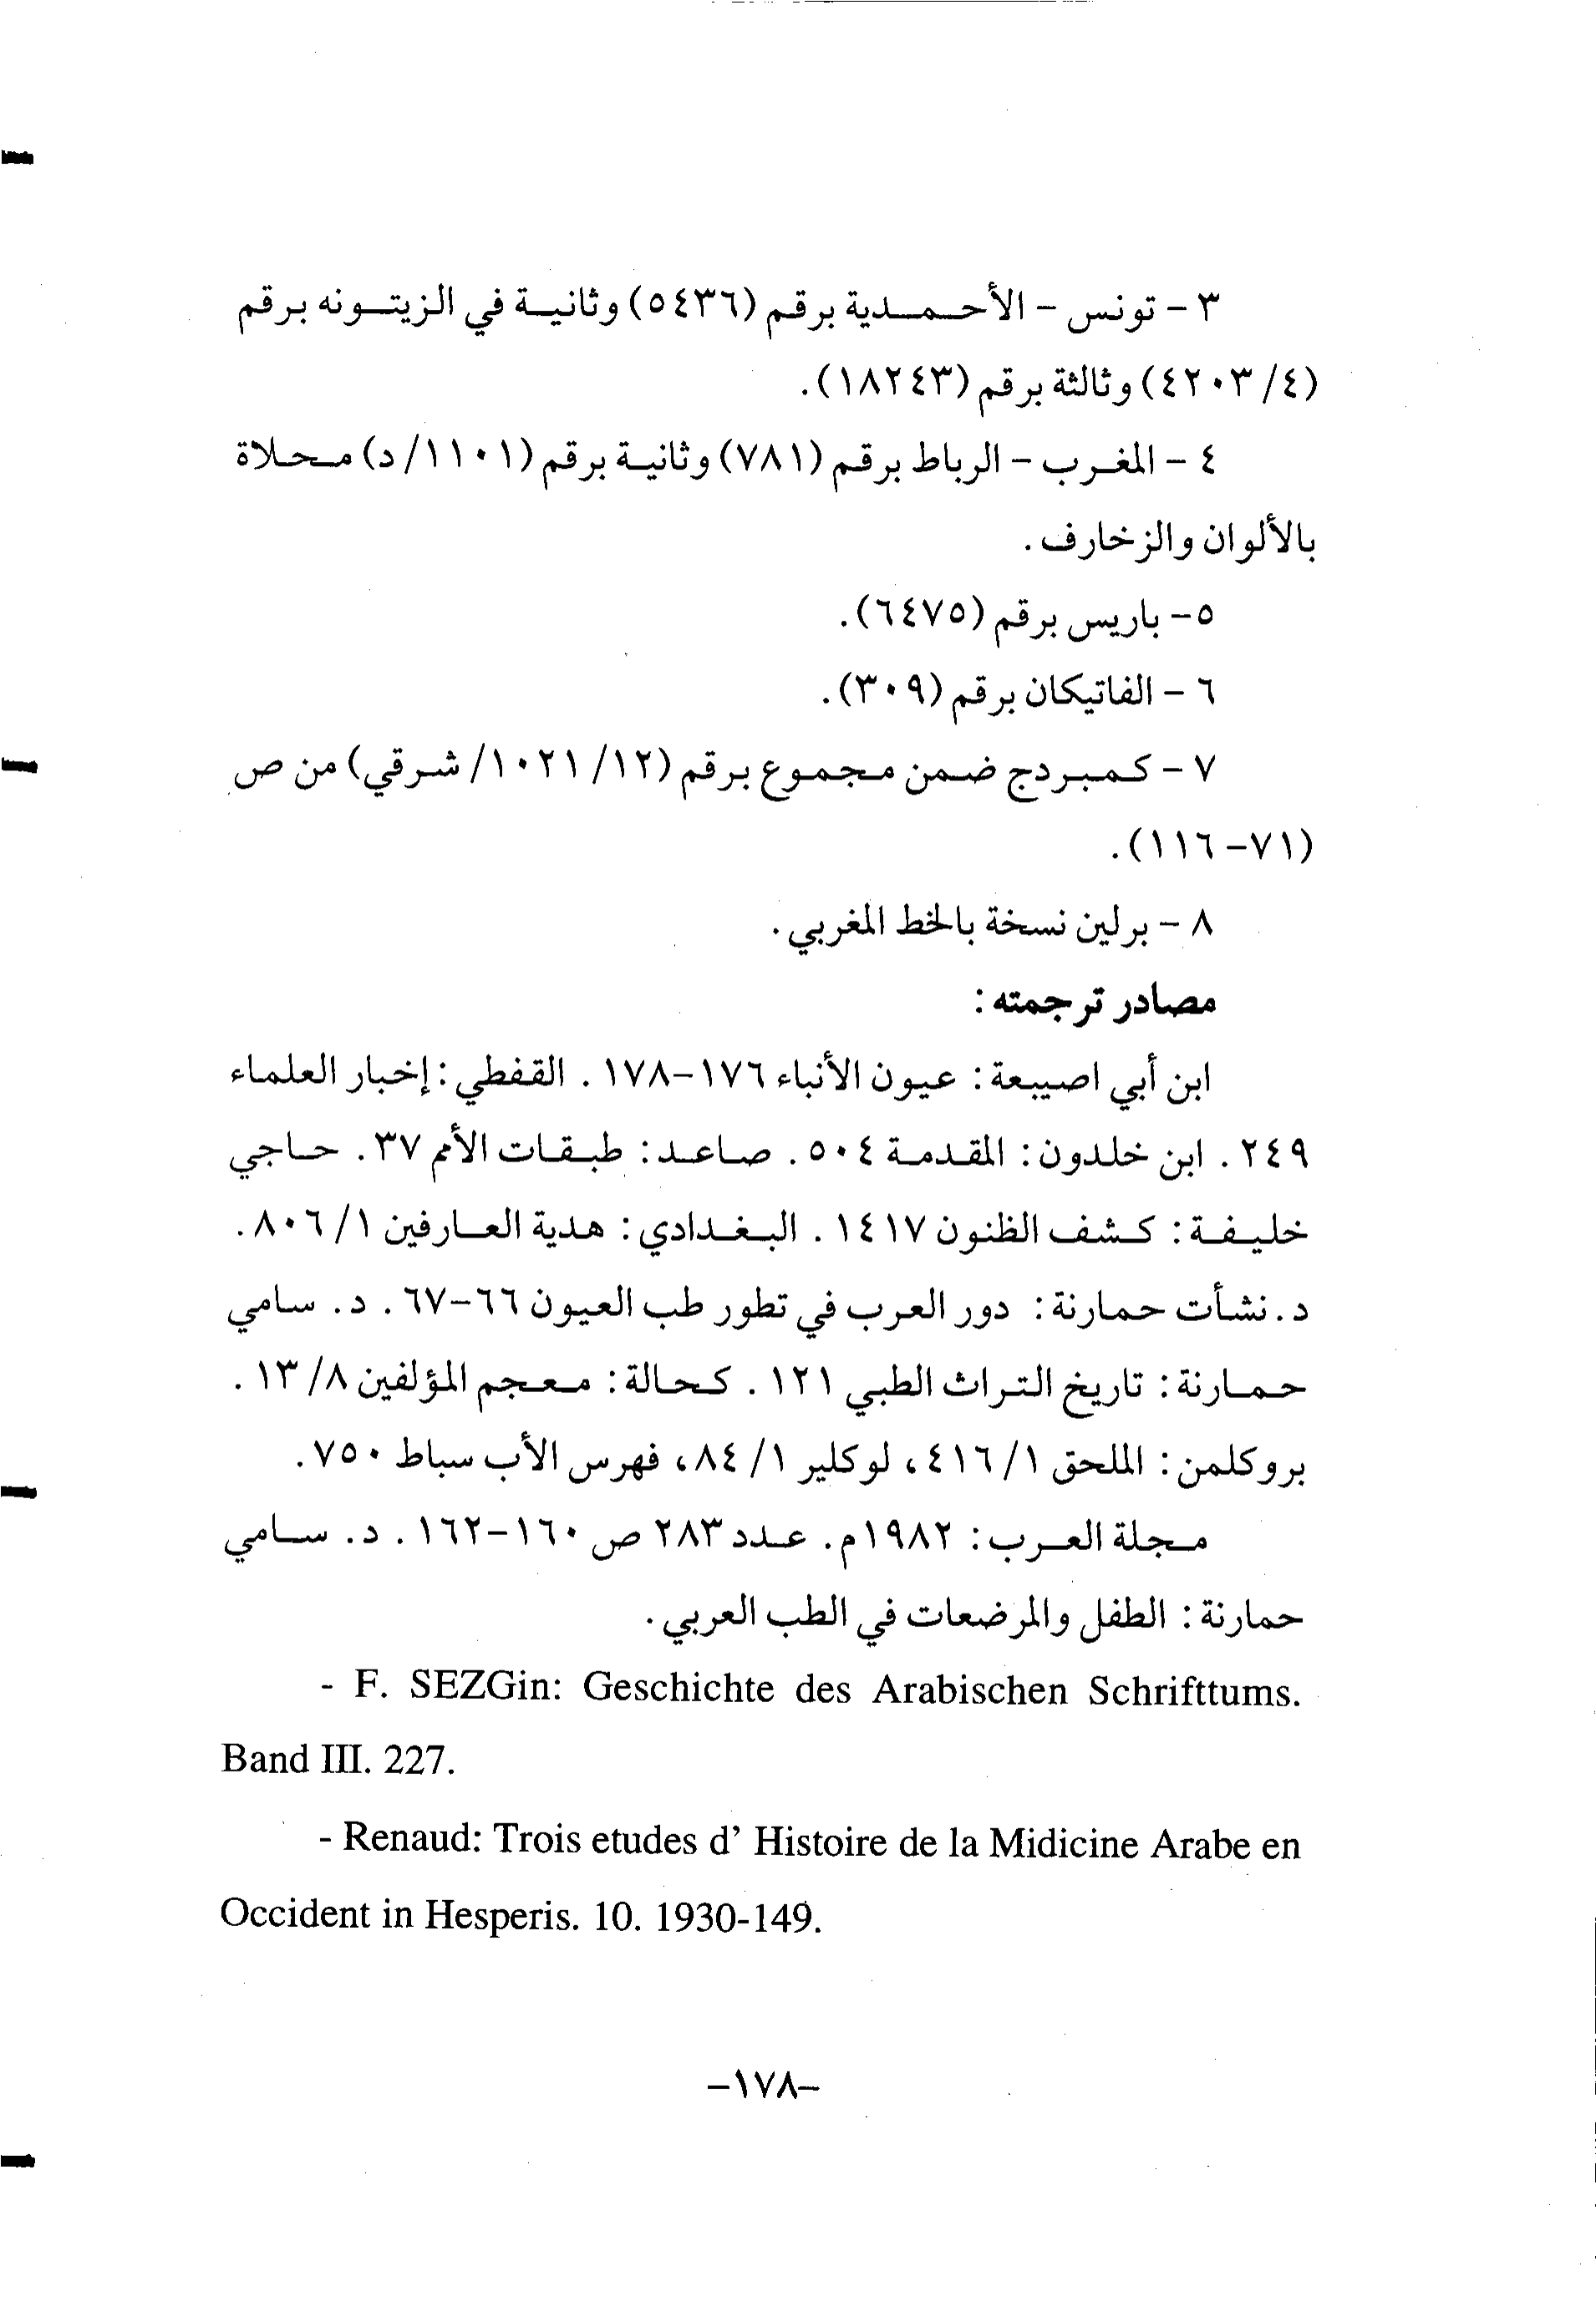 ٣ - تونس - الأحمدية برقم (٥٤٣٦) وثانية في الزيتونه برقم
(٤/ ٤٢٠٣) وثالثة برقم (١٨٢٤٣).
٤ - المغرب - الرباط برقم (٧٨١) وثانية برقم (١١٠١/ د) محلاة
بالألوان والزخارف.
٥- باريس برقم (٦٤٧٥).
٦ - الفاتيكان برقم (٣٠٩).
٧ - كمبردج ضمن مجموع برقم (١٢/ ١٠٢١/ شرقي) من ص
(٧١- ١١٦).
٨ - برلين نسخة بالخط المغربي.
مصادر ترجمته:
ابن أبي اصيبعة: عيون الأنباء ١٧٦-١٧٨. القفطي: إخبار العلماء
٢٤٩. ابن خلدون: المقدمة ٥٠٤. صاعد: طبقات الأمم ٣٧. حاجي
خليفة: كشف الظنون ١٤١٧. البغدادي: هدية العارفين ١/ ٨٠٦.
د. نشأت حمارنة: دور العرب في تطور طب العيون ٦٦-٦٧. د. سامي
حمارنة: تاريخ التراث الطبي ١٢١. كحالة: معجم المؤلفين ٨/ ١٣.
بروكلمن: الملحق ١/ ٤١٦، لوكلير ١/ ٨٤، فهرس الأب سباط ٧٥٠.
مجلة العرب: ١٩٨٢م. عدد ٢٨٣ ص ١٦٠-١٦٢. د. سامي
حمارنة: الطفل والمرضعات في الطب العربي.
- F. SEZGin: Geschichte des Arabischen Schrifttums.
Band III. 227.
- Renaud: Trois etudes d' Histoire de la Midicine Arabe en
Occident in Hesperis. 10. 1930-149.
-١٧٨-